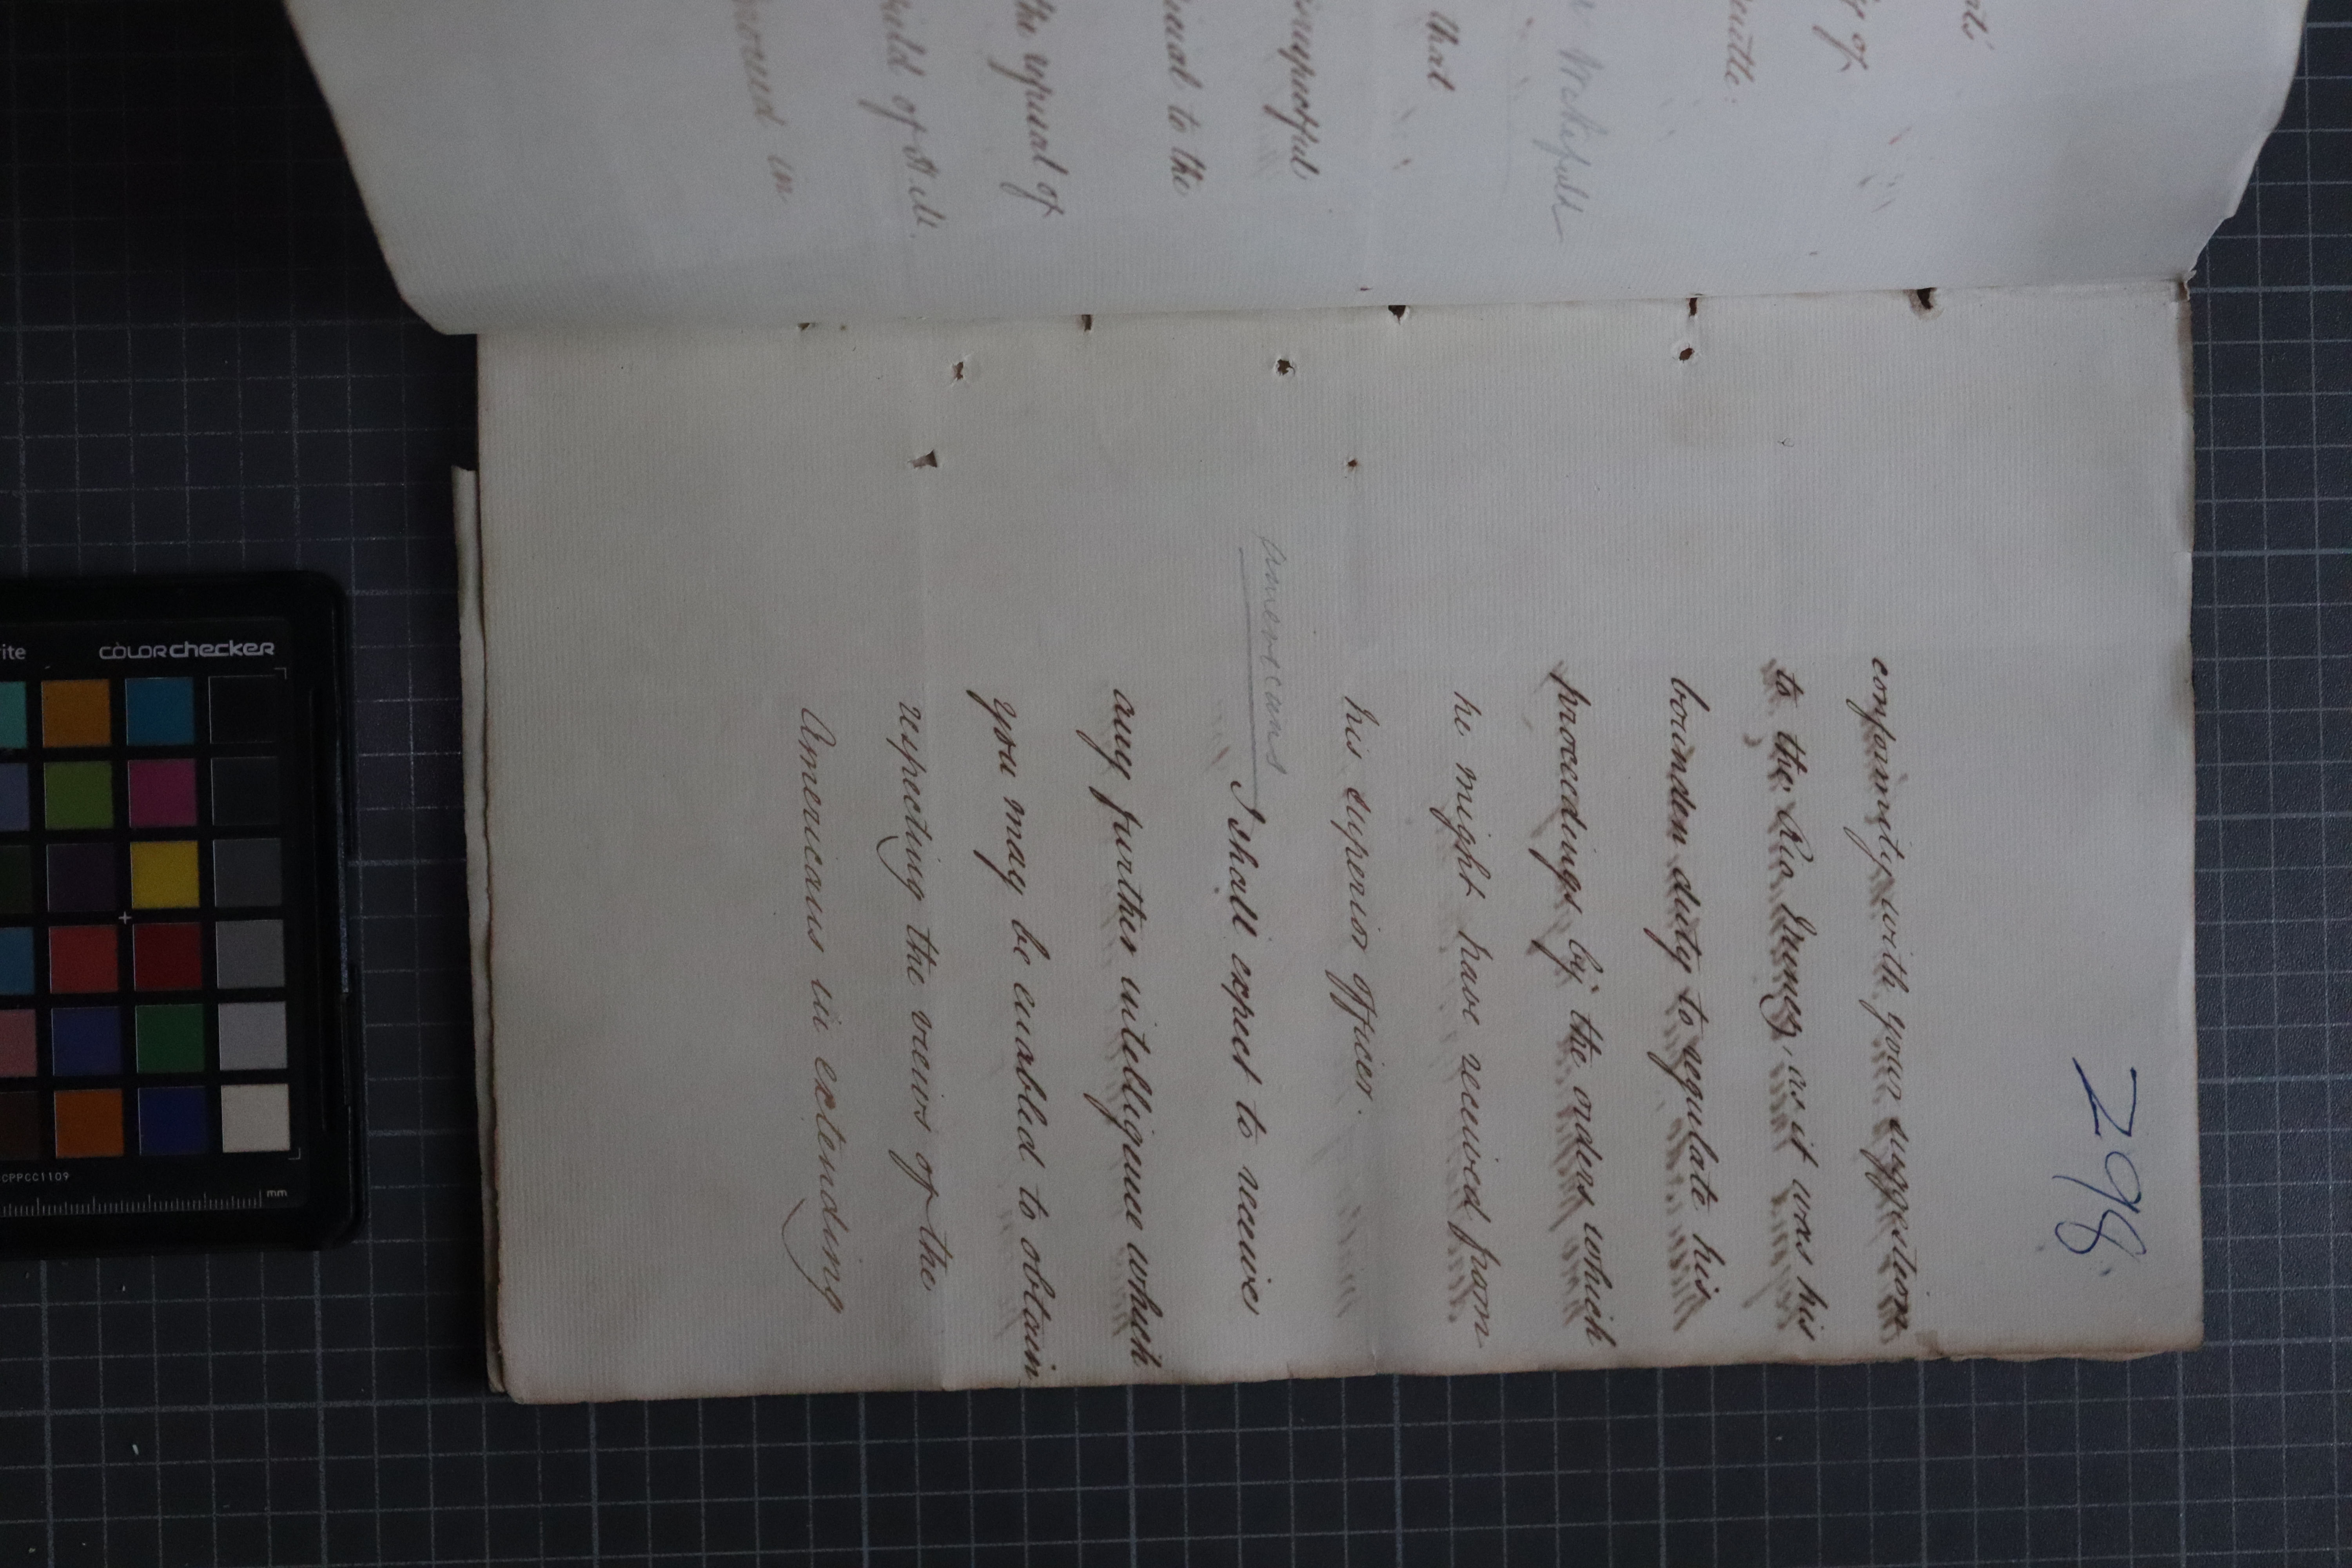 298
conformity with your suggestion
to the Rio Nunez, as it was his
bounden duty to regulate his
proceedings by the orders which
he might have received from
his superior officer.
Americans
I shall expect to receive
any further intelligence which
you may be enabled to obtain
respecting the views of the
Americans in extending
that
the refusal of
in
to the
of
colorchecker
mm
CPPCC1109